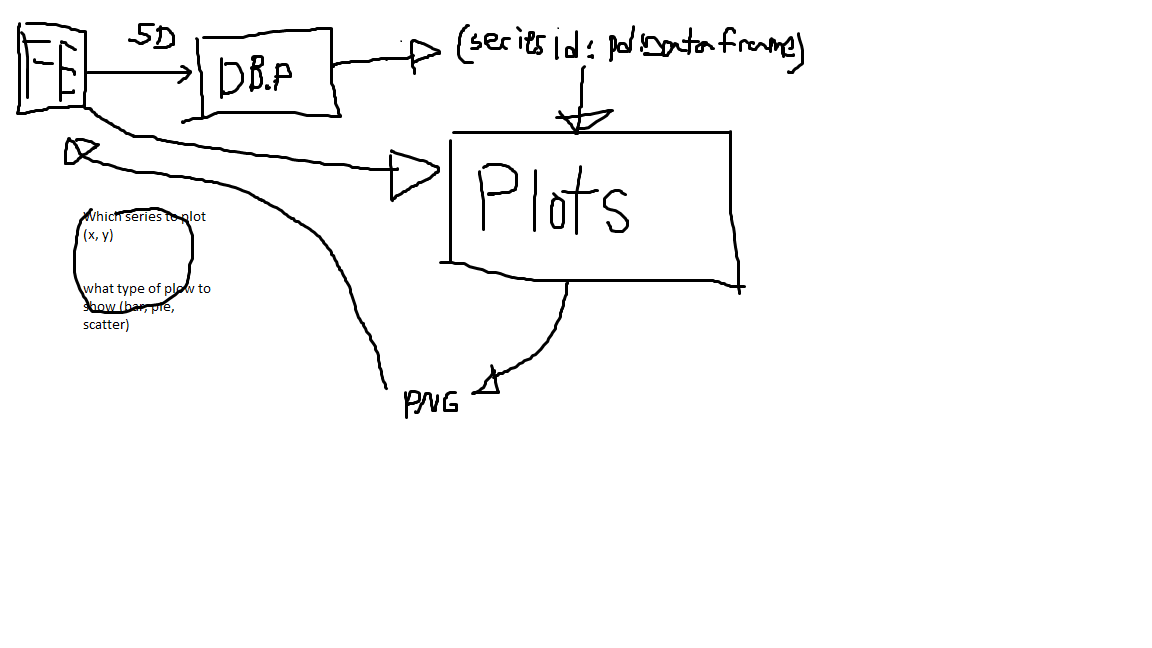 FE
SD
DB.P
(series id: pd.Dataframe)
Plots
Which series to plot
(x, y)
what type of plow to
show (bar, pie,
scatter)
PNG